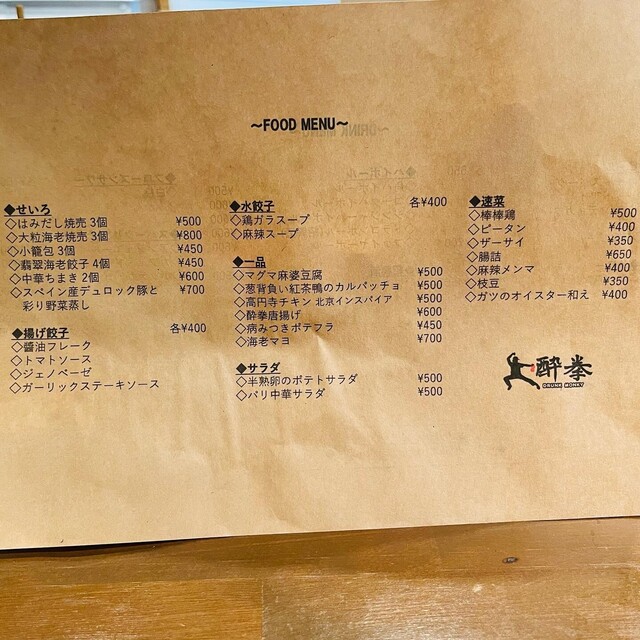 ~FOOD MENU~
◆せいろ
◇はみだし焼売 3個 ¥500
◇大粒海老焼売 3個 ¥800
◇小籠包 3個 ¥450
◇翡翠海老餃子 4個 ¥450
◇中華ちまき 2個 ¥600
◇スペイン産デュロック豚と ¥700
彩り野菜蒸し
◆揚げ餃子 各¥400
◇醤油フレーク
◇トマトソース
◇ジェノベーゼ
◇ガーリックステーキソース
◆水餃子 各¥400
◇鶏ガラスープ
◇麻辣スープ
◆一品
◇マグマ麻婆豆腐 ¥500
◇葱背負い紅茶鴨のカルパッチョ ¥500
◇高円寺チキン 北京インスパイア ¥500
◇酔拳唐揚げ ¥600
◇病みつきポテフラ ¥450
◇海老マヨ ¥700
◆サラダ
◇半熟卵のポテトサラダ ¥500
◇パリ中華サラダ ¥500
◆速菜
◇棒棒鶏 ¥500
◇ピータン ¥400
◇ザーサイ ¥350
◇腸詰 ¥650
◇麻辣メンマ ¥400
◇枝豆 ¥350
◇ガツのオイスター和え ¥400
酔拳
DRUNK MONKY